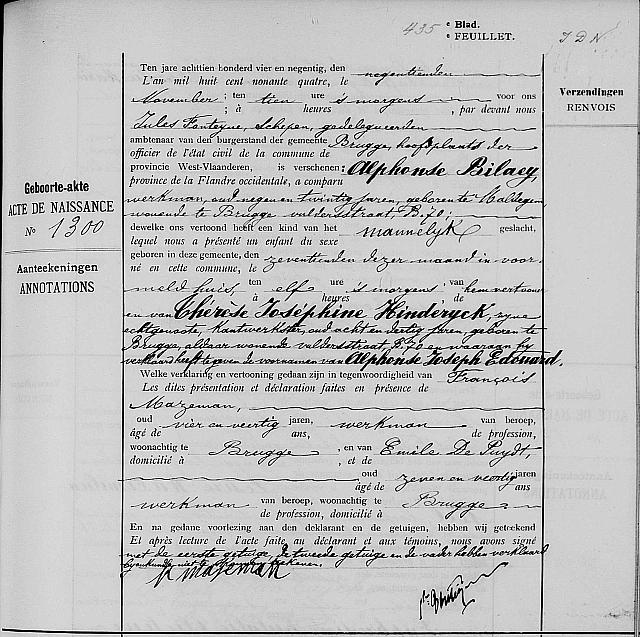 435 e Blad.
e FEUILLET.
Verzendingen
RENVOIS
Geboorte-akte
ACTE DE NAISSANCE
No 1300
Aanteekeningen
ANNOTATIONS
Ten jare achttien honderd vier en negentig, den negentienden
L'an mil huit cent nonante quatre, le
November ; ten tien ure 's morgens voor ons
; à heures , par devant nous
Jules Fonteyne, Schepen, gedelegueerden
ambtenaar van den burgerstand der gemeente Brugge, hoofdplaats der
officier de l'état civil de la commune de
provincie West-Vlaanderen, is verschenen: Alphonse Bilaey,
province de la Flandre occidentale, a comparu
werkman, oud negen en twintig jaren, geboren te Maldegem
wonende te Brugge vuldersstraat
dewelke ons vertoond heeft een kind van het mannelyk geslacht,
lequel nous a présenté un enfant du sexe
geboren in deze gemeente, den zeventienden dezer maand in voor-
né en cette commune, le
meld huis, ten elf ure 's morgens van hem vertooner
à heures de
en van Thérèse Joséphine Hinderyck, zyne
echtgenoote, kantwerkster, oud acht en dertig jaren, geboren te
Brugge, aldaar wonende vuldersstraat en waaraan hy
verklaard heeft te geven de voornamen van Alphonse Joseph Edouard.
Welke verklaring en vertooning gedaan zijn in tegenwoordigheid van François
Les dites présentation et déclaration faites en présence de
Mazeman,
oud vier en veertig jaren, werkman van beroep,
âgé de ans, de profession,
woonachtig te Brugge , en van Emile De Puydt,
domicilié à , et de
oud zeven en veertig jaren
âgé de ans
werkman van beroep, woonachtig te Brugge
de profession, domicilié à
En na gedane voorlezing aan den deklarant en de getuigen, hebben wij geteekend
Et après lecture de l'acte faite au déclarant et aux témoins, nous avons signé
met de eerste getuige, de tweede getuige en de vader hebben verklaard
te teekenen.